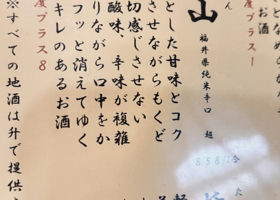 お酒
度プラス1
山
福井県純米辛口 超
858/1合
とした甘味とコク
させながらもくど
切感じさせない
酸味、辛味が複雑
りながら口中をか
フッと消えてゆく
キレのあるお酒
度プラス8
※すべての地酒は升で提供